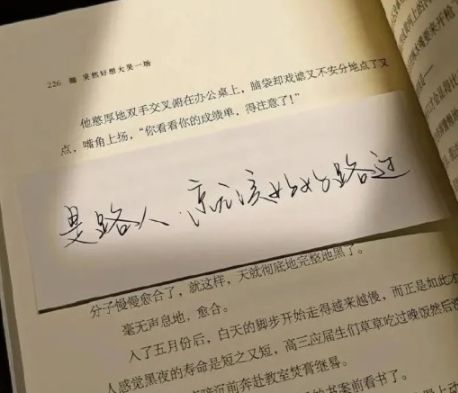 226 突然好想大哭一场
他憨厚地双手交叉俯在办公桌上，脑袋却戏谑又不安分地点了又
点，嘴角上扬，“你看看你的成绩单，得注意了！”
是路人 就应该好好路过
分子慢慢愈合了，就这样，天就彻底地完整地黑了。
毫无声息地，愈合。
入了五月份后，白天的脚步开始走得越来越慢，而正是如此才
人感觉黑夜的寿命是短之又短，高三应届生们草草吃过晚饭然后
前奔赴教室焚膏继晷。
书案前看书了。